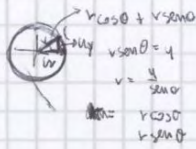 r cosθ + r senθ
r senθ = y
r = y / senθ
r cosθ
r senθ